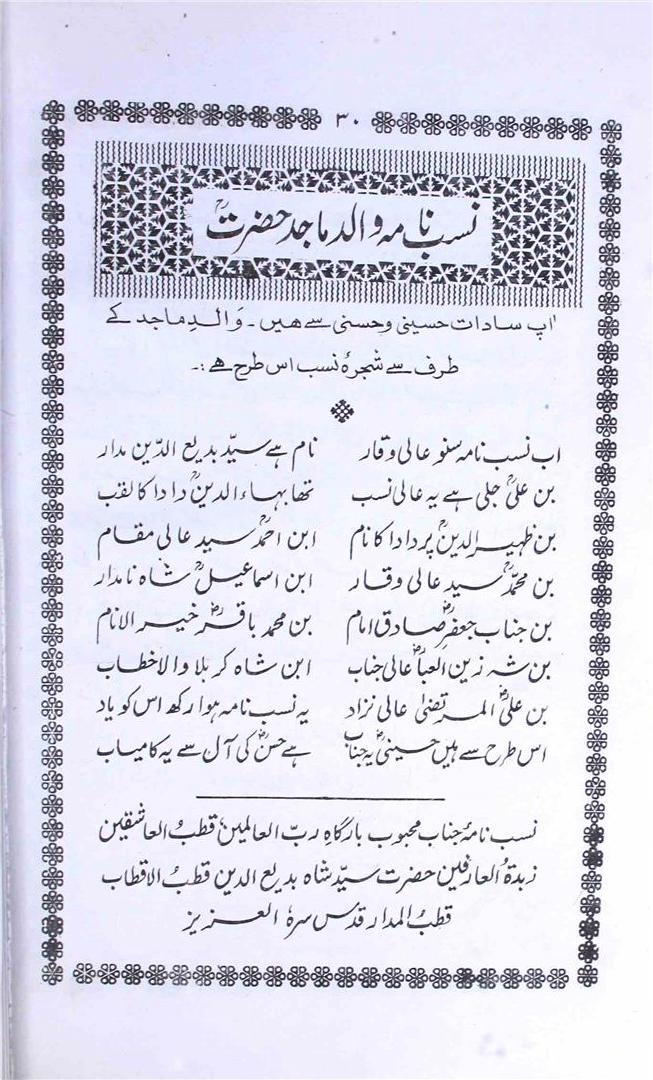 ۳۰
نسب نامہ والد ماجد حضرتؒ
آپ سادات حسینی و حسنی سے ھیں۔ وَالدِ ماجد کے
طرف سے شجرۂ نسب اس طرح ھے:۔
اب نسب نامہ سنو عالی وقار نام ہے سیّد بدیع الدّین مدار
بن علیؒ جلی ہے یہ عالی نسب تھا بہاء الدینؒ دادا کا لقب
بن ظہیر الدینؒ پردادا کا نام ابن احمدؒ سید عالی مقام
بن محمدؒ سید عالی وقار ابن اسماعیلؒ شاہ نامدار
بن جناب جعفرؓ صادق امام بن محمد باقرؓ خیر الانام
بن شہ زین العباؓ عالی جناب ابن شاہ کربلا والا خطاب
بن علیؓ المرتضیٰ عالی نژاد یہ نسب نامہ ہوا رکھ اس کو یاد
اس طرح سے ہیں حسینیؓ یہ جناب ہے حسنؓ کی آل سے یہ کامیاب
نسب نامۂ جناب محبوب بارگاہِ ربّ العالمین قطبُ العاشقین
زبدۃُ العارفین حضرت سیّد شاہ بدیع الدین قطبُ الاقطاب
قطبُ المدار قدس سرہٗ العزیز